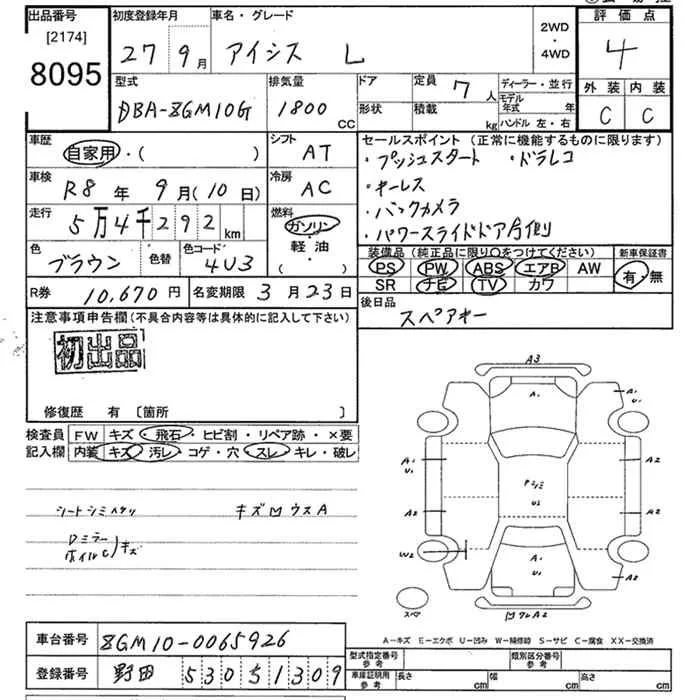 出品番号
[2174]
8095
初度登録年月
27 9月
車名・グレード
アイシス L
2WD
・
4WD
評価点
4
外装 内装
C C
型式
DBA-ZGM10G
排気量
1800 CC
ドア
形状
定員 7人
積載 kg
ディーラー・並行
モデル年式 年
ハンドル 左・右
車歴
自家用・( )
シフト
AT
車検
R8年 9月(10日)
冷房
AC
走行
5万4千292km
燃料
ガソリン・
軽油
( )
色
ブラウン
色替
色コード
4U3
セールスポイント (正常に機能するものに限ります)
・プッシュスタート ・ドラレコ
・キーレス
・バックカメラ
・パワースライドドア合側
装備品 (純正品に限り○をつけてください)
PS PW ABS エアB AW
SR ナビ TV カワ
新車保証書
有・無
R券 10,670円
名変期限 3月23日
後日品
スペアキー
注意事項申告欄(不具合内容等は具体的に記入して下さい)
初出品
修復歴 有 〔箇所 〕
検査員記入欄
FW キズ・飛石・ヒビ割・リペア跡・×要
内装 キズ・汚レ・コゲ・穴・スレ・キレ・破レ
シートシミヘタリ キズMウスA
Dミラー
ホイルC)キズ
A3
A1
A1
U1
A1
U1
A2
A2
A2
W2
A1
U1
A2
スペア
A-キズ E-エクボ U-凹み W-補修跡 S-サビ C-腐食 XX-交換済
車台番号 ZGM10-0065926
登録番号 野田 530 ち 1309
型式指定番号
参考
類別区分番号
参考
車庫証明用
参考
長さ cm
幅 cm
高さ cm